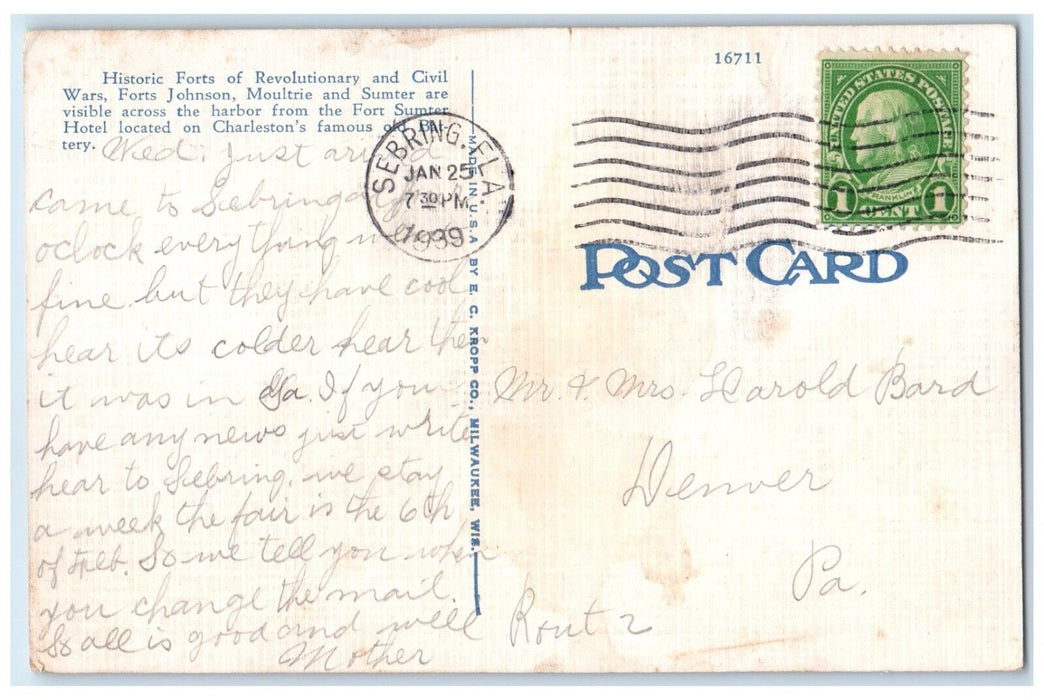 Historic Forts of Revolutionary and Civil
Wars, Forts Johnson, Moultrie and Sumter are
visible across the harbor from the Fort Sumter
Hotel located on Charleston's famous old Bat-
tery.
Wed. Just
came to Sebring
oclock everything
fine but they have cool
hear its colder hear then
it was in Ga. If you
have any news just write
hear to Sebring. we stay
a week the fair is the 6th
of Feb. So we tell you when
you change the mail.
So all is good and well
Mother
SEBRING, FLA.
JAN 25
7 30 PM
1939
MADE IN U.S.A. BY E. C. KROPP CO., MILWAUKEE, WIS.
16711
UNITED STATES POSTAGE
FRANKLIN
1 CENT 1
POST CARD
Mr. & Mrs. Harold Bard
Denver
Pa.
Rout 2